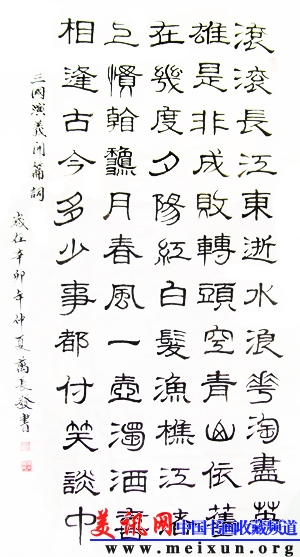 滾滾長江東逝水浪花淘盡英
雄是非成敗轉頭空青山依舊
在幾度夕陽紅白髮漁樵江渚
上慣看龝月春風一壺濁酒喜
相逢古今多少事都付笑談中
三國演義開篇詞
歲在辛卯年仲夏萬長發書
美讯网 中国书画收藏频道
www.meixun.org